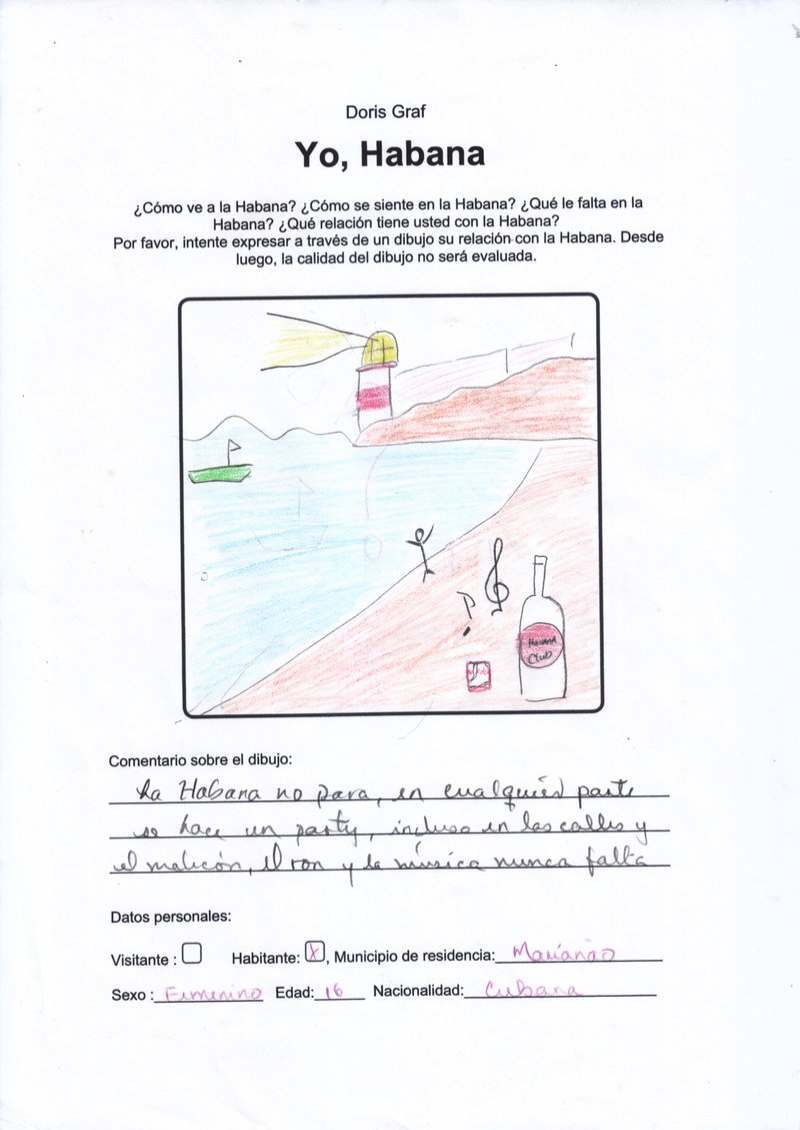 Doris Graf
Yo, Habana
¿Cómo ve a la Habana? ¿Cómo se siente en la Habana? ¿Qué le falta en la
Habana? ¿Qué relación tiene usted con la Habana?
Por favor, intente expresar a través de un dibujo su relación con la Habana. Desde
luego, la calidad del dibujo no será evaluada.
Havana
Club
Comentario sobre el dibujo:
La Habana no para, en cualquier parte
se hace un party, incluso en las calles y
el malecón, el ron y la música nunca falta
Datos personales:
Visitante : Habitante: X, Municipio de residencia: Marianao
Sexo : Femenino Edad: 16 Nacionalidad: Cubana